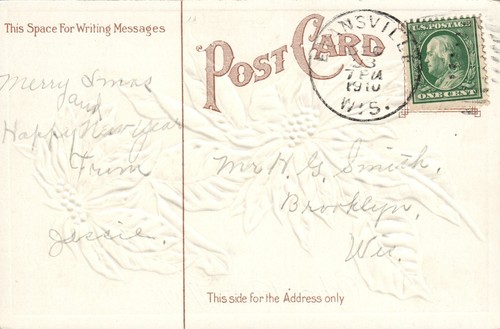 This Space For Writing Messages
POST CARD
EVANSVILLE
7 PM
1910
WIS.
U.S. POSTAGE
ONE CENT
Merry Xmas
and
Happy New Year
From
Jessie.
Mr H. G. Smith.
Brooklyn.
Wis.
This side for the Address only